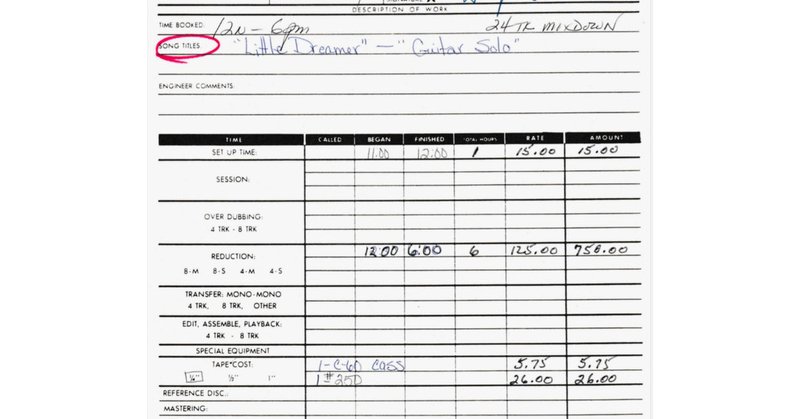 DESCRIPTION OF WORK
TIME BOOKED: 12N - 6pm 24 TK MIXDOWN
SONG TITLES: "Little Dreamer" — "Guitar Solo"
ENGINEER COMMENTS:
TIME CALLED BEGAN FINISHED TOTAL HOURS RATE AMOUNT
SET UP TIME: 11:00 12:00 1 15.00 15.00
SESSION:
OVER DUBBING:
4 TRK - 8 TRK
REDUCTION: 12:00 6:00 6 125.00 750.00
8-M 8-S 4-M 4-S
TRANSFER: MONO-MONO
4 TRK, 8 TRK, OTHER
EDIT, ASSEMBLE, PLAYBACK:
4 TRK - 8 TRK
SPECIAL EQUIPMENT
TAPE*COST: 1-C-60 CASS 5.75 5.75
¼" ½" 1" 1 #250 26.00 26.00
REFERENCE DISC.:
MASTERING: